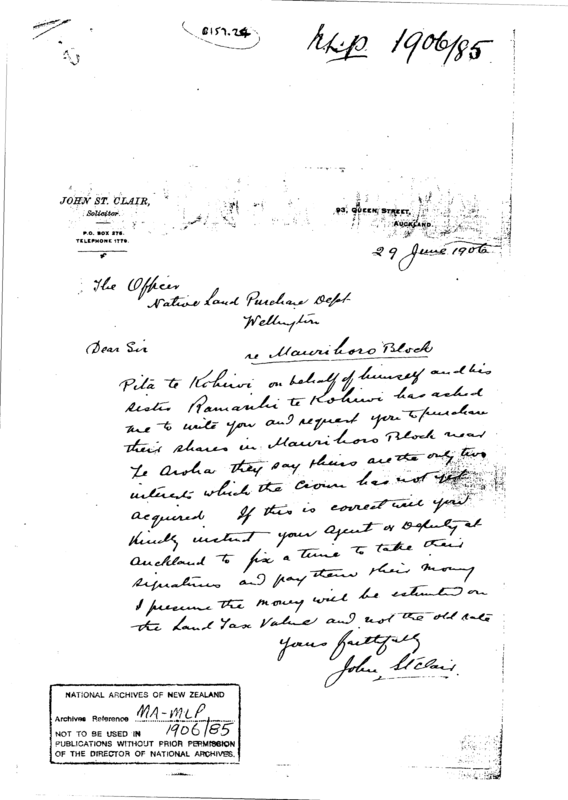 B157.24
MLP 1906/85
JOHN ST. CLAIR,
Solicitor.
P.O. BOX 276.
TELEPHONE 1779.
93, QUEEN STREET,
AUCKLAND.
29 June 1906
The Officer
Native Land Purchase Dept
Wellington
Dear Sir
re Maurihoro Block
Pita te Kohiwi on behalf of himself and his
sister te Kohiwi has asked
me to write you and request you to purchase
their shares in Maurihoro Block near
Te Aroha they say theirs are the only two
interests which the Crown has not yet
acquired If this is correct will you
kindly instruct your Agent or Deputy at
Auckland to fix a time to take their
signatures and pay them their money
I presume the money will be estimated on
the Land Tax Value and not the old rate
Yours faithfully
John St Clair.
NATIONAL ARCHIVES OF NEW ZEALAND
Archives Reference MA-MLP
1906/85
NOT TO BE USED IN
PUBLICATIONS WITHOUT PRIOR PERMISSION
OF THE DIRECTOR OF NATIONAL ARCHIVES.